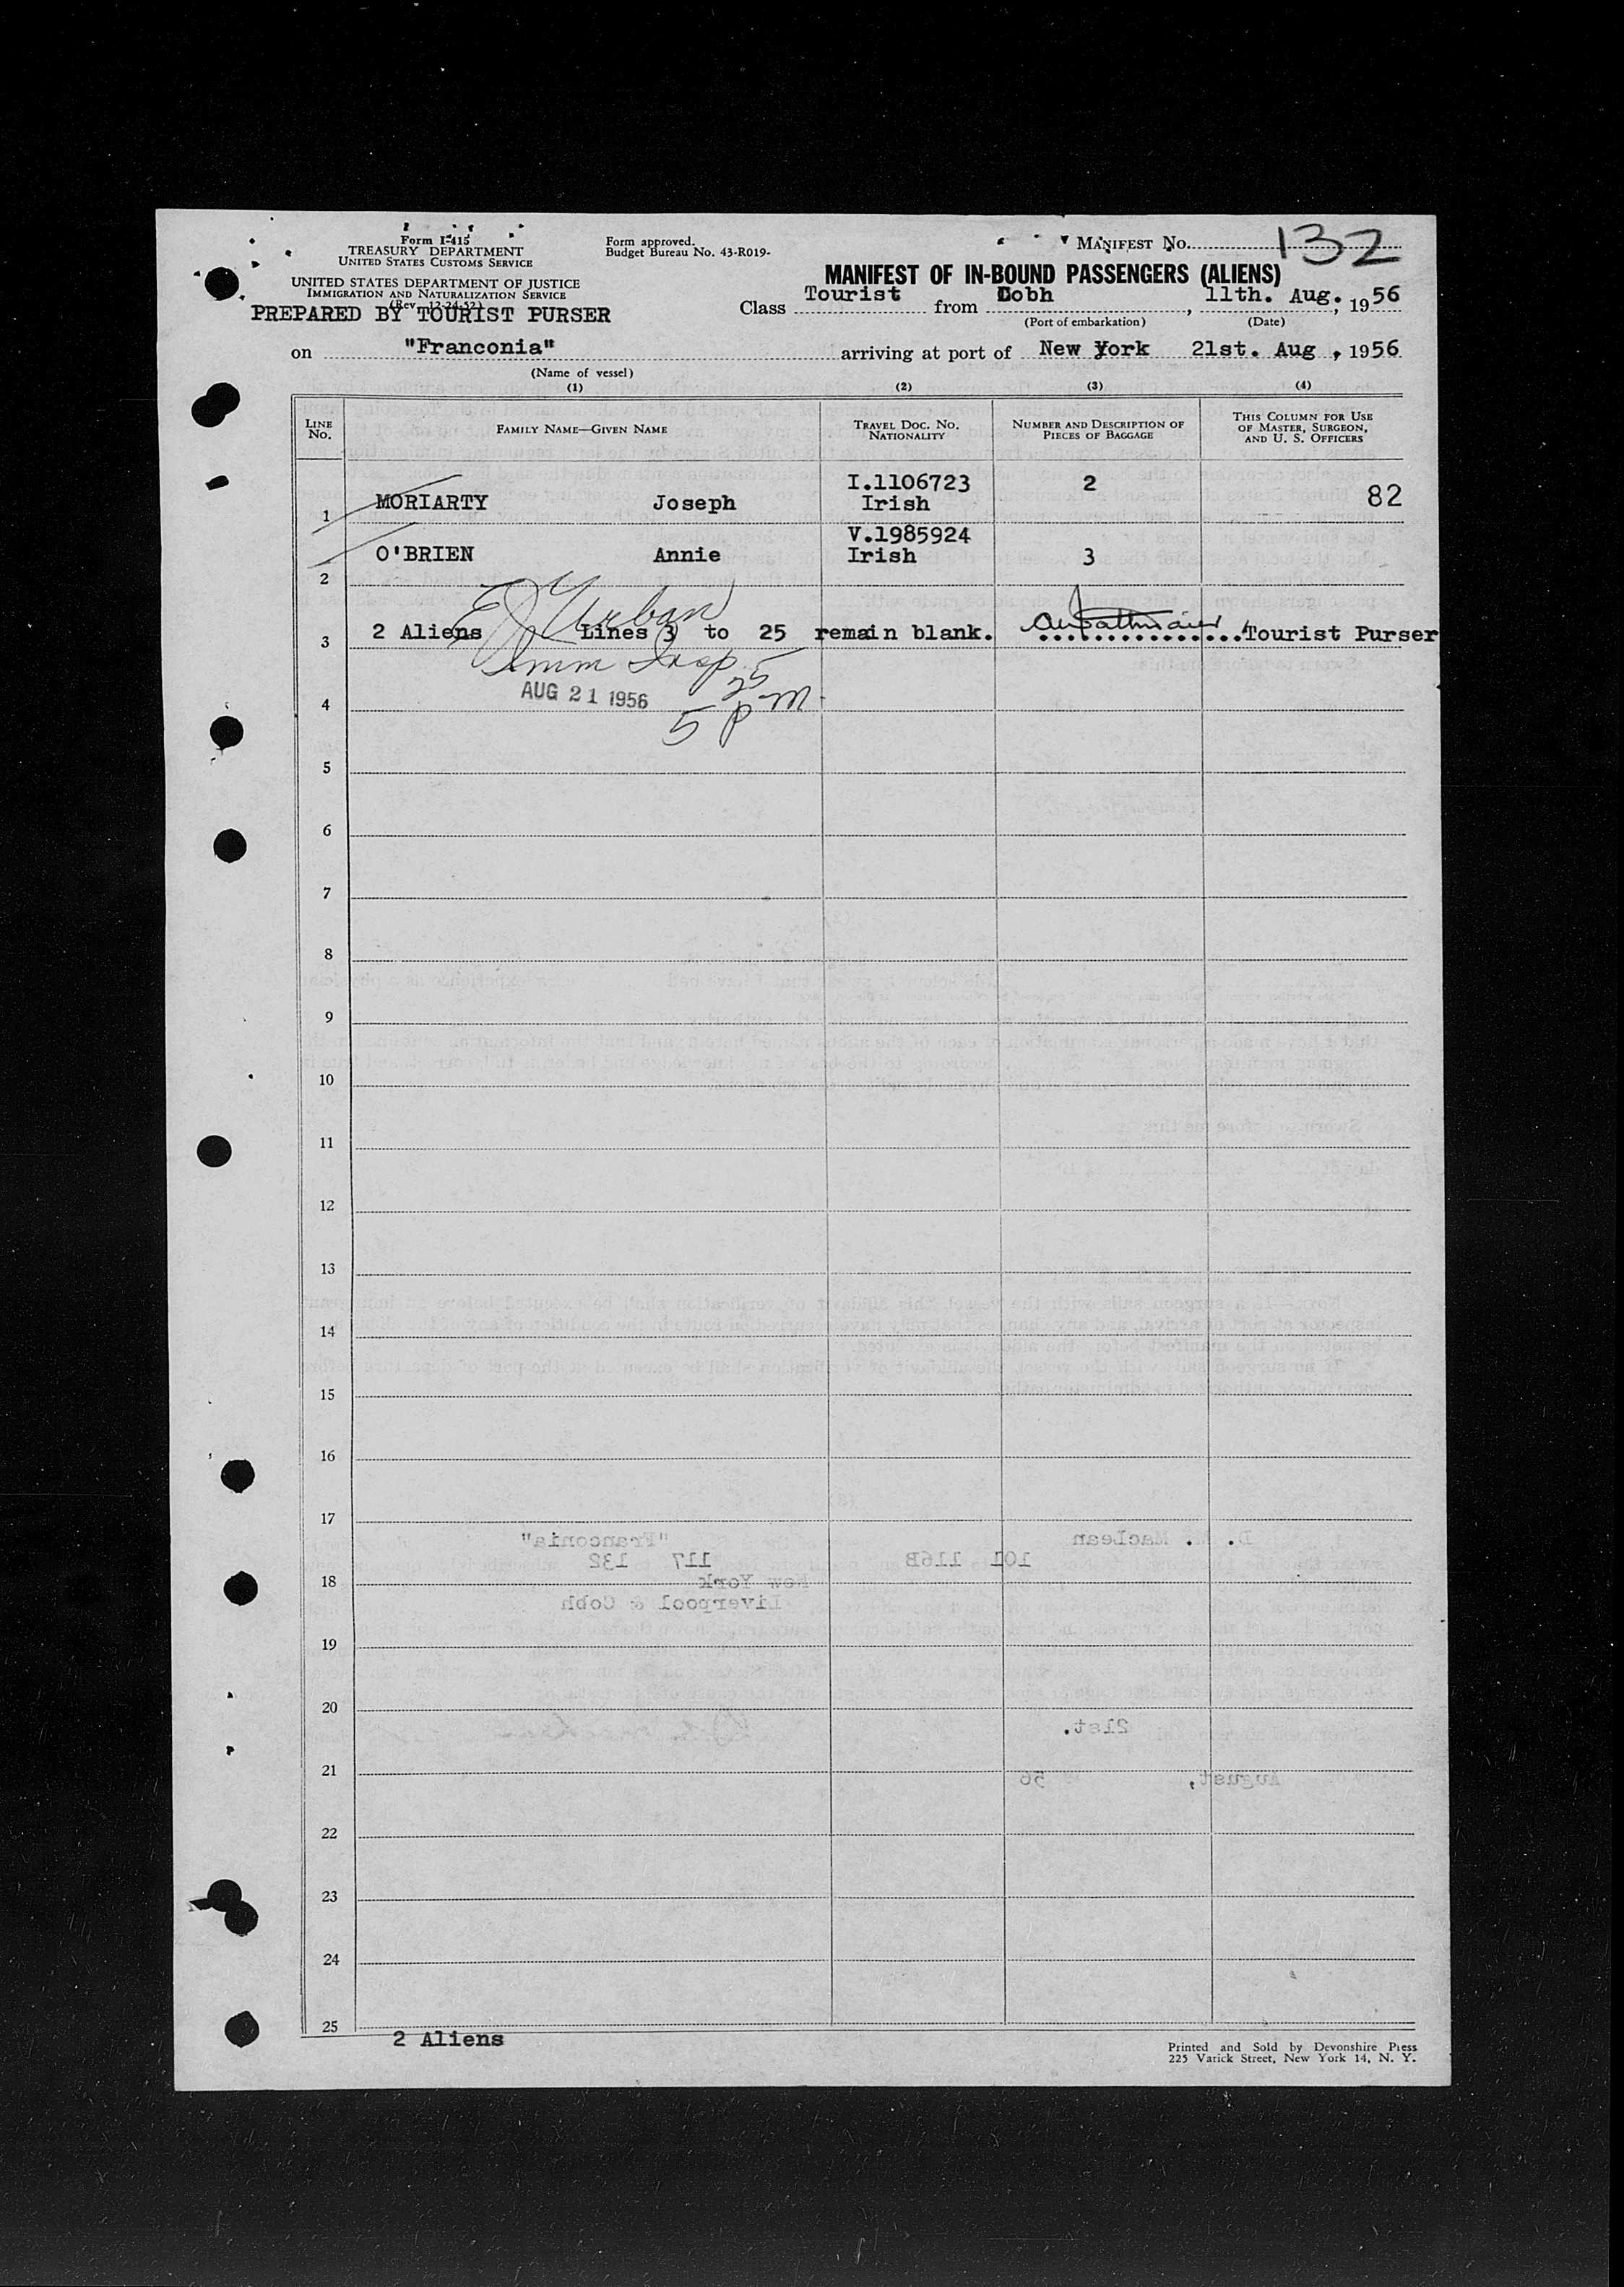 Form I-415
TREASURY DEPARTMENT
UNITED STATES CUSTOMS SERVICE
UNITED STATES DEPARTMENT OF JUSTICE
IMMIGRATION AND NATURALIZATION SERVICE
(Rev. 12-24-52)
PREPARED BY TOURIST PURSER
Form approved.
Budget Bureau No. 43-R019-
MANIFEST No. 132
MANIFEST OF IN-BOUND PASSENGERS (ALIENS)
Class Tourist from Cobh, 11th. Aug., 1956
(Port of embarkation) (Date)
on "Franconia" arriving at port of New York 21st. Aug, 1956
(Name of vessel)
(1) (2) (3) (4)
LINE No. FAMILY NAME—GIVEN NAME TRAVEL DOC. NO. NATIONALITY NUMBER AND DESCRIPTION OF PIECES OF BAGGAGE THIS COLUMN FOR USE OF MASTER, SURGEON, AND U. S. OFFICERS
I.1106723
1 MORIARTY Joseph Irish 2 82
V.1985924
2 O'BRIEN Annie Irish 3
E J Urban
3 2 Aliens Lines 3 to 25 remain blank. ..............Tourist Purser
Imm Insp.
4 AUG 21 1956 5 25 pm.
5
6
7
8
9
10
11
12
13
14
15
16
17
"Franconia" MacLean
117 132 101 116B
18 New York
Liverpool & Cobh
19
20
21st.
21 August, 56
22
23
24
25
2 Aliens
Printed and Sold by Devonshire Press
225 Varick Street, New York 14, N. Y.